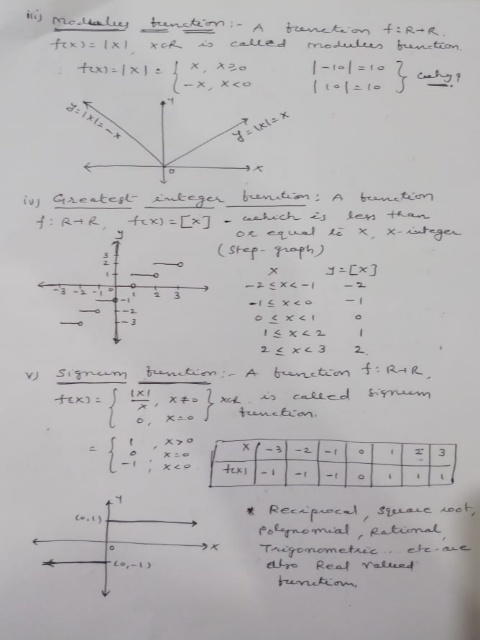 iii) Modulus function:- A function f: R→R.
f(x) = |x|, x∈R is called modulus function.
∴ f(x) = |x| = { x, x≥0
-x, x<0
|-10| = 10
|10| = 10 } why?
y=|x|=-x
y
y=|x|=x
0
x
iv) Greatest integer function: A function
f: R→R, f(x) = [x] - which is less than
or equal to x, x-integer
(Step-graph)
y
3
2
1
-3 -2 -1 0 1 2 3
-1
-2
-3
x y=[x]
-2 ≤ x < -1 -2
-1 ≤ x < 0 -1
0 ≤ x < 1 0
1 ≤ x < 2 1
2 ≤ x < 3 2
v) Signum function:- A function f: R→R,
f(x) = { |x|/x, x≠0
0, x=0 } x∈R is called Signum
function.
= { 1, x>0
0, x=0
-1, x<0
x -3 -2 -1 0 1 2 3
f(x) -1 -1 -1 0 1 1 1
y
(0,1)
0
x
(0,-1)
* Reciprocal, Square root,
Polynomial, Rational,
Trigonometric... etc are
also Real valued
functions.